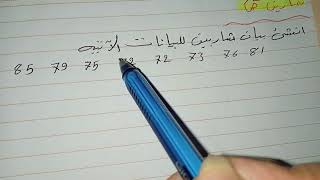 تمارين
انشئ بيان صاربين للبيانات الآتيه
85 79 75 72 73 76 81